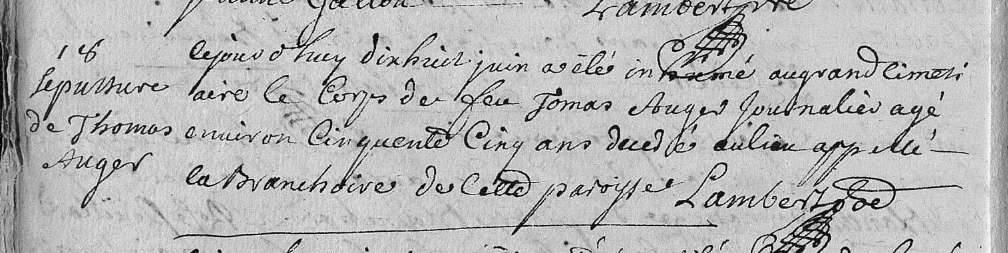 Lambert
18
sepulture
de Thomas
Auger
lejour d'huy dixhuit juin a eté inhumé augrand Cimeti
aire le Corps de feu Tomas Auger Journalier agé
environ Cinquente Cinq ans decedé aulieu appellé
la Branchoire de Cette paroysse Lambert